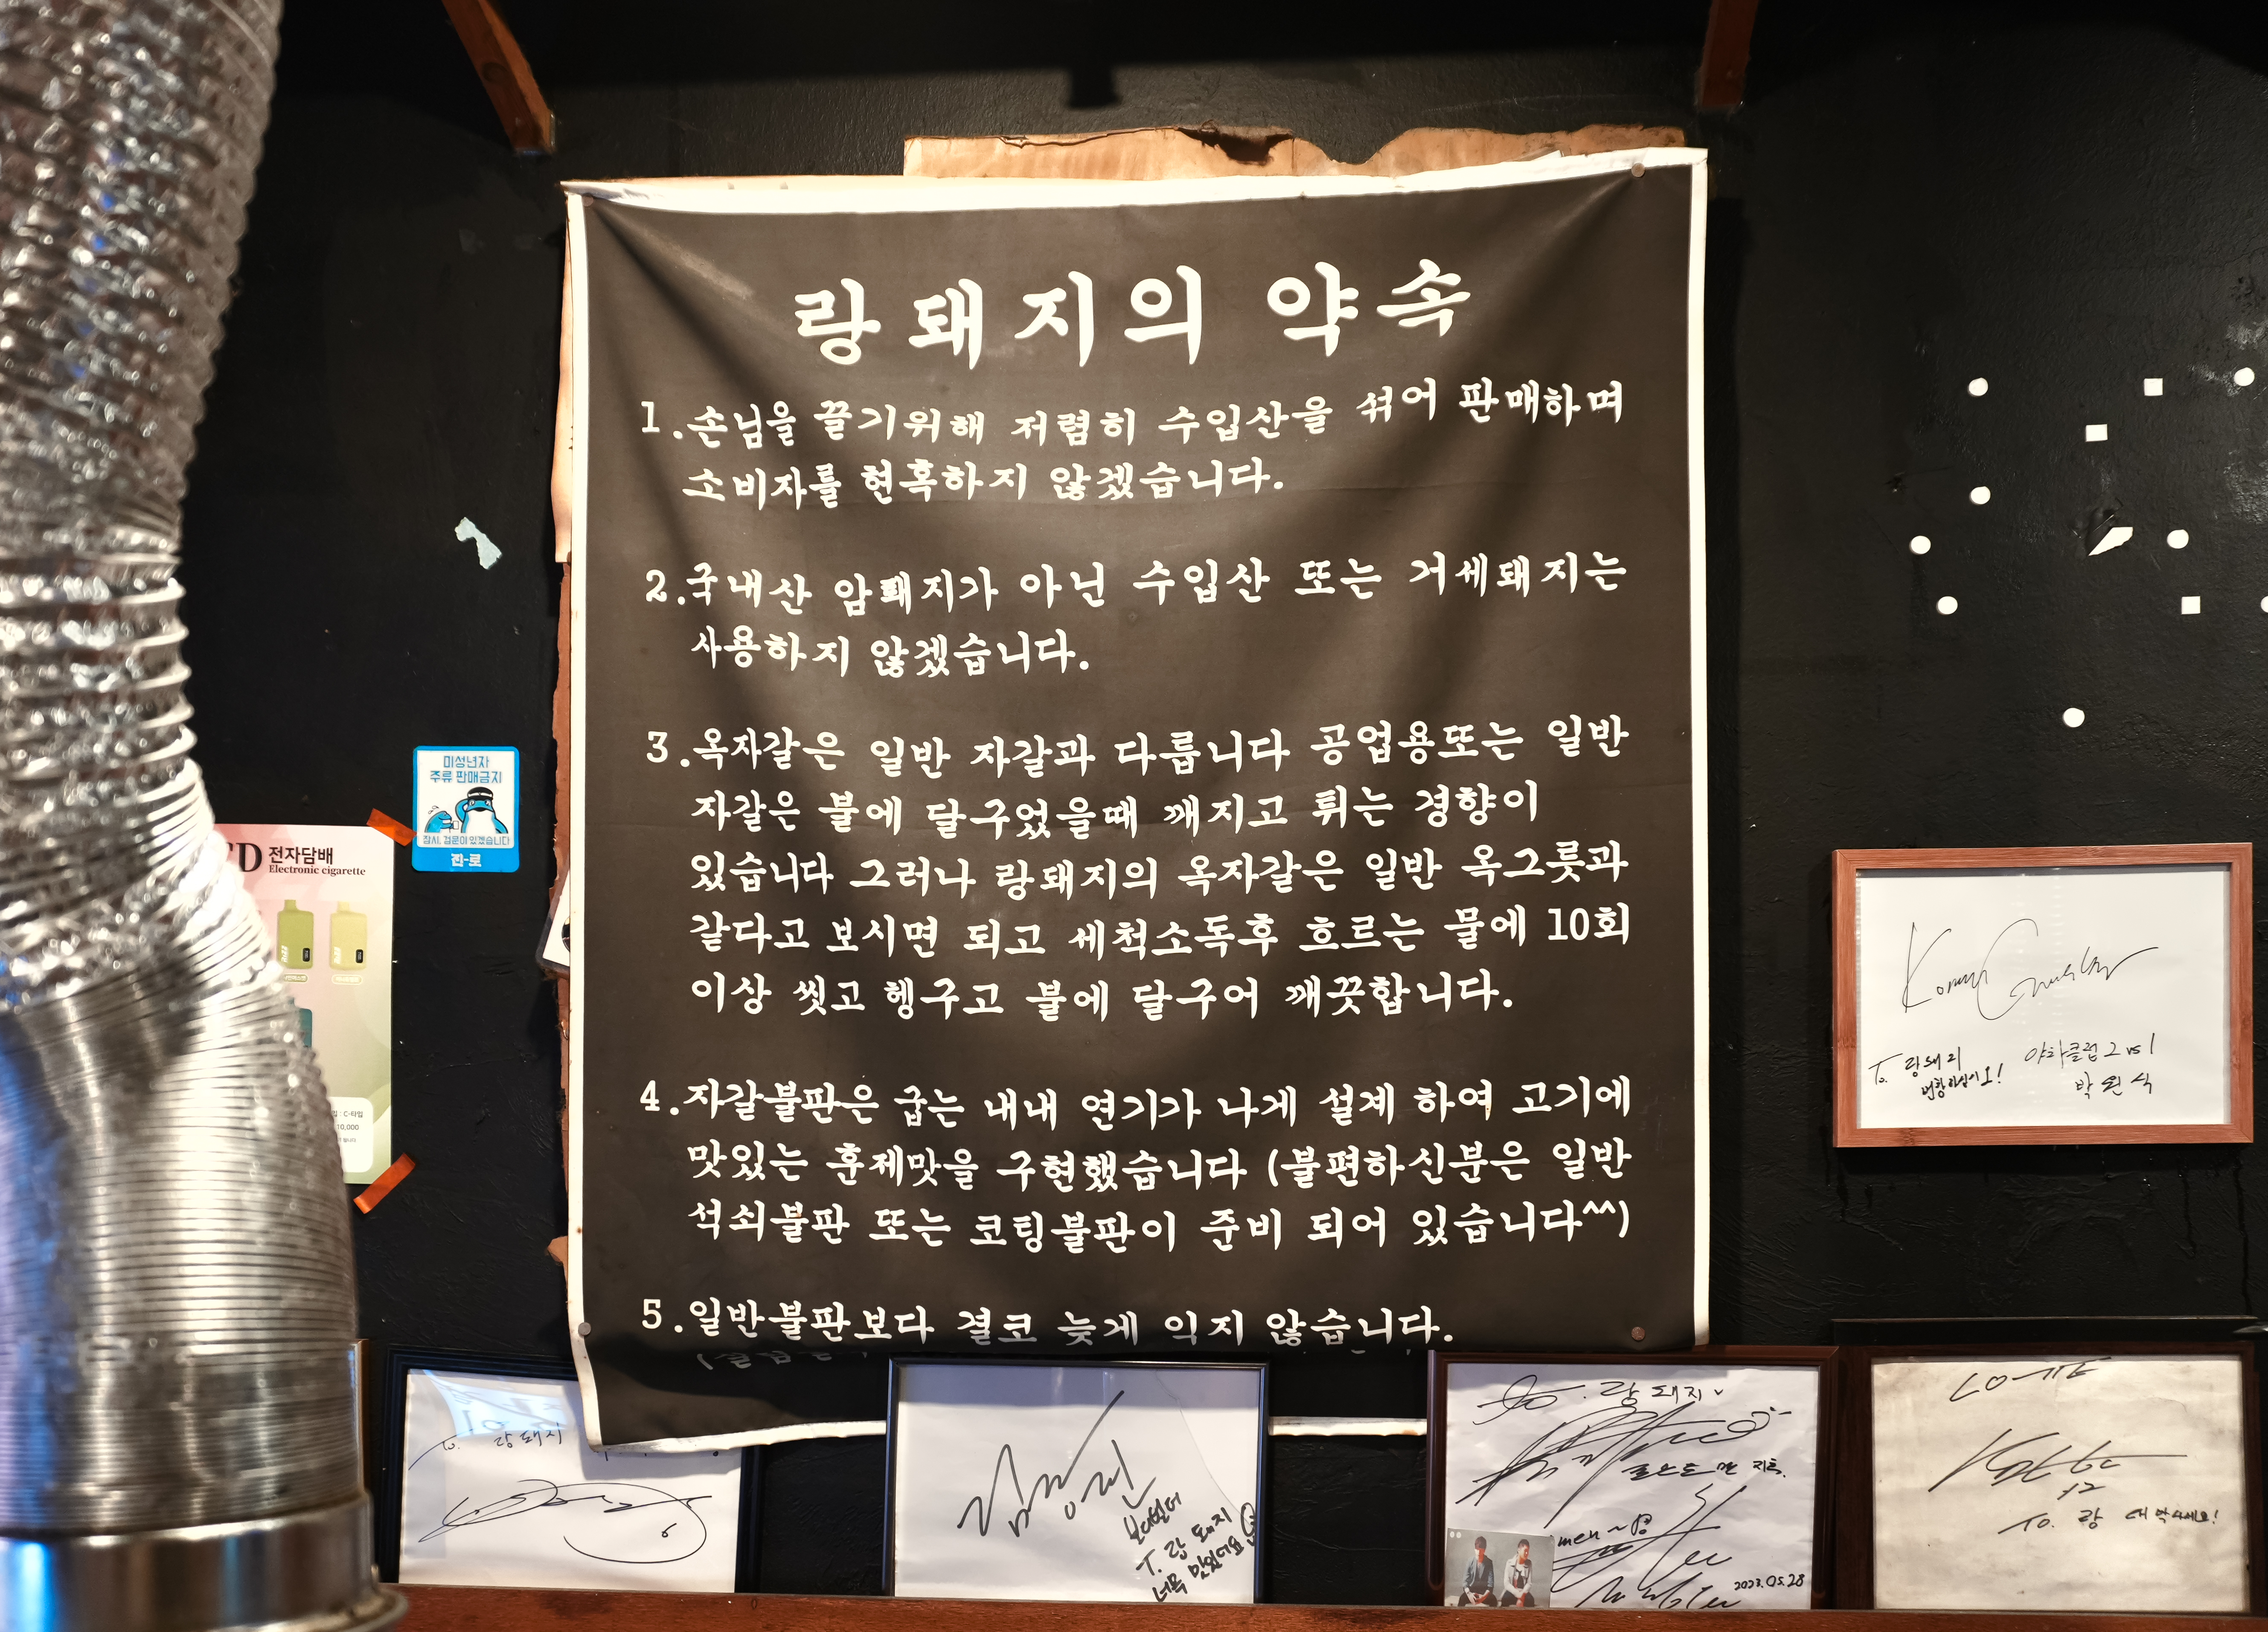 랑돼지의 약속
1.손님을 끌기위해 저렴히 수입산을 섞어 판매하며
소비자를 현혹하지 않겠습니다.
2.국내산 암퇘지가 아닌 수입산 또는 거세돼지는
사용하지 않겠습니다.
3.옥자갈은 일반 자갈과 다룹니다 공업용또는 일반
자갈은 불에 달구었을때 깨지고 튀는 경향이
있습니다 그러나 랑돼지의 옥자갈은 일반 옥그릇과
같다고 보시면 되고 세척소독후 흐르는 물에 10회
이상 씻고 헹구고 불에 달구어 깨끗합니다.
4.자갈불판은 굽는 내내 연기가 나게 설계 하여 고기에
맛있는 훈제맛을 구현했습니다 (불편하신분은 일반
석쇠불판 또는 코팅불판이 준비 되어 있습니다^^)
5.일반불판보다 결코 늦게 익지 않습니다.
미성년자
주류 판매금지
잠시, 검문이 있겠습니다
진-로
전자담배
Electronic cigarette
C-타입
10,000
To. 랑돼지
번창하십시오!
야차클럽 2 vs 1
박원식
To. 랑돼지
T. 랑돼지
너무 맛있어요
to. 랑돼지
men~
2023.05.28
LOTTE
12
To. 랑